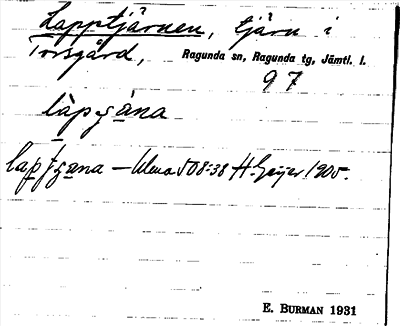 Lapptjärnen, tjärn i
Torsgård, Ragunda sn, Ragunda tg, Jämtl. l.
97
làpʒána
lapʒana — Ulma 508:38 H. Geijer 1905.
E. BURMAN 1931